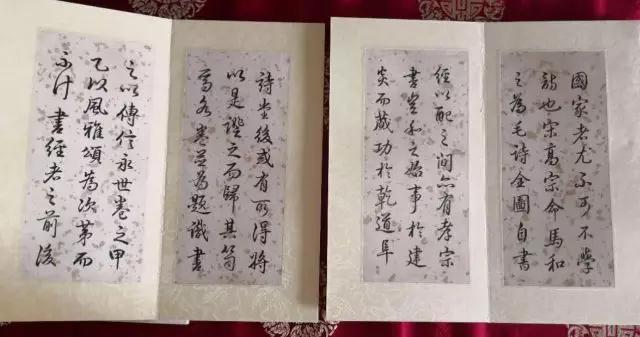 國家者尤不可不學
詩也宋高宗命馬和
之為毛詩全圖自書
經以配之間亦有孝宗
書者和之始事於建
炎而蕆功於乾道阜
詩堂後或有所得將
以是證之而歸其笥
焉各卷並為題識書
之以傳信永世卷之甲
乙以風雅頌為次第而
不計書經者之前後